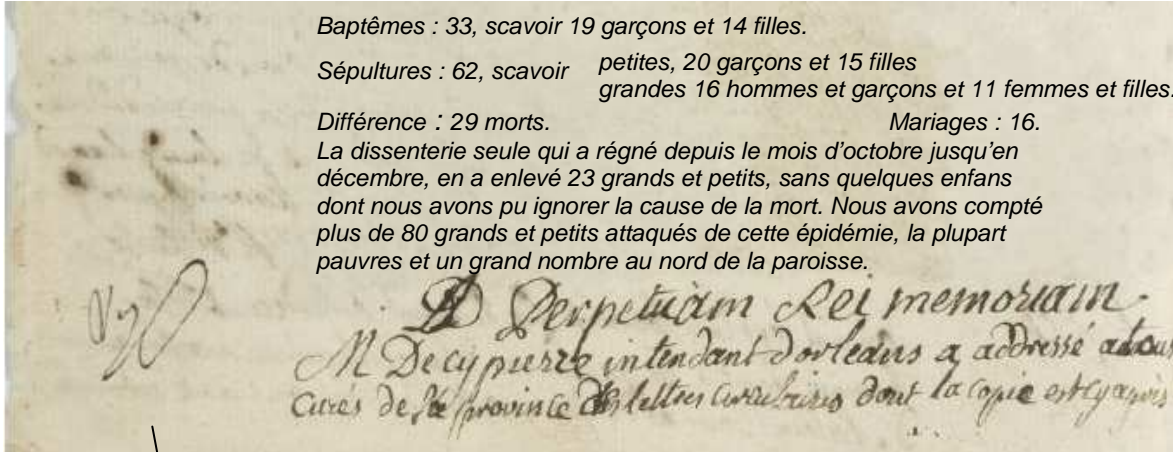 Baptêmes : 33, scavoir 19 garçons et 14 filles.
Sépultures : 62, scavoir petites, 20 garçons et 15 filles
grandes 16 hommes et garçons et 11 femmes et filles.
Différence : 29 morts. Mariages : 16.
La dissenterie seule qui a régné depuis le mois d'octobre jusqu'en
décembre, en a enlevé 23 grands et petits, sans quelques enfans
dont nous avons pu ignorer la cause de la mort. Nous avons compté
plus de 80 grands et petits attaqués de cette épidémie, la plupart
pauvres et un grand nombre au nord de la paroisse.
Perpetuam Rei memoriam.
M Decypierre intendant dorleans a addressé a tous
curés de la province lettres circulaires dont la copie est cy après